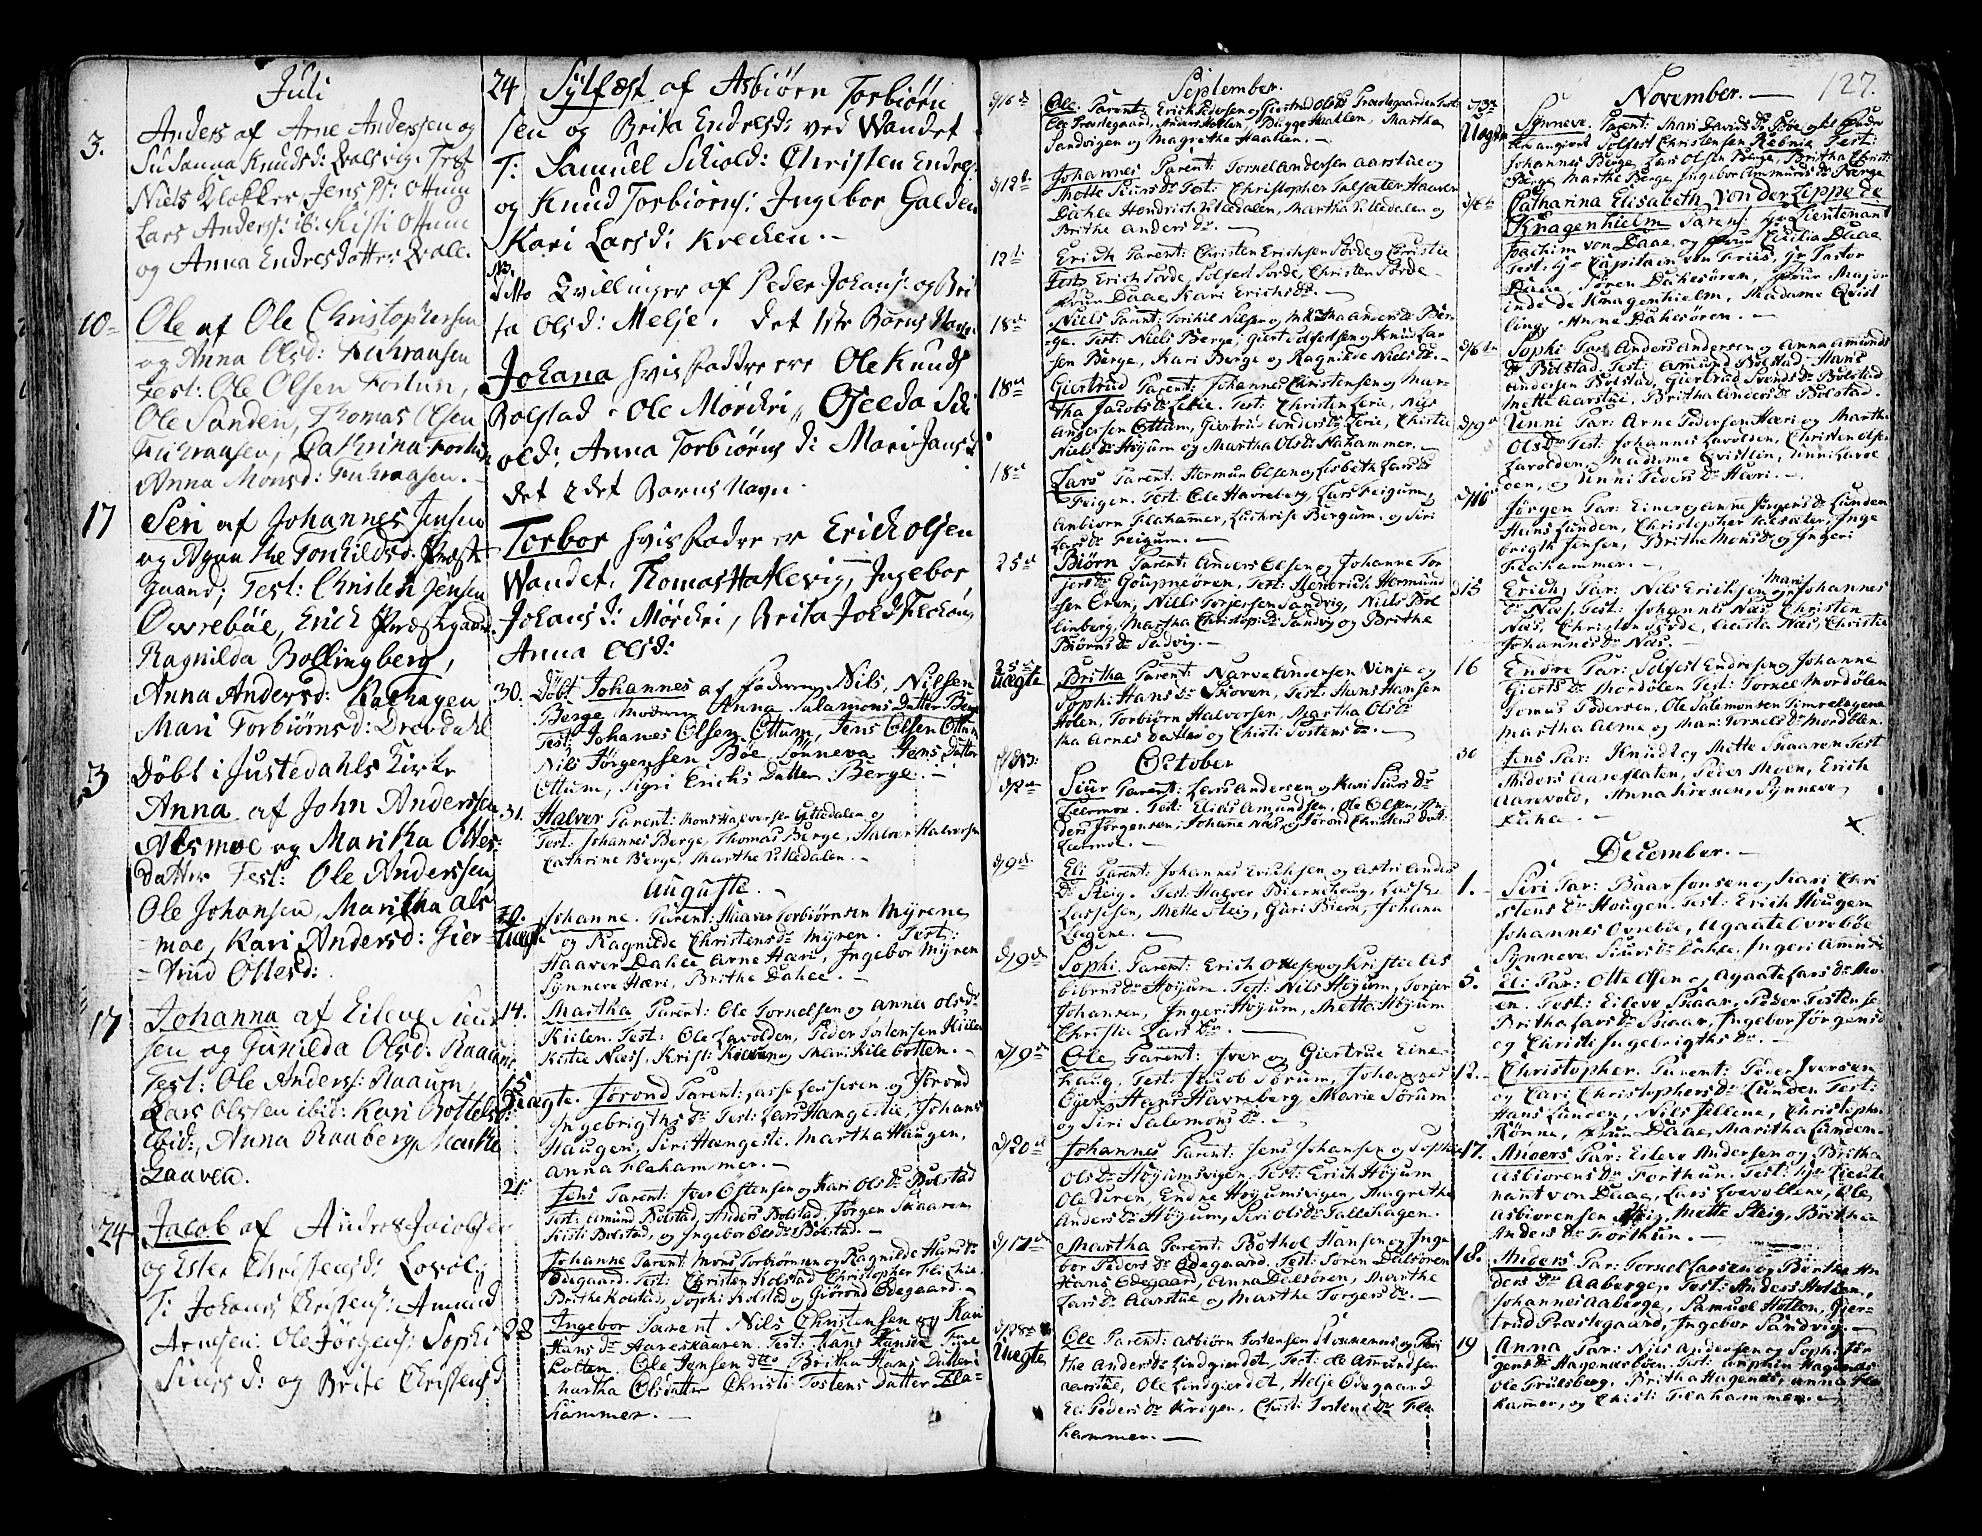 Juli
3. Anders af Arne Anderssen og
Susanna Knudsd: Qvalsvig. Test
Niels Klokker, Jens Ottum
Lars Anderss: ib: Kisti Ottum
og Anna Endresdatter Qvale.
10 Ole af Ole Christophersen
og Anna Olsd: Fuhraasen
Test: Ole Olsen Fortun,
Ole Sanden, Thomas Olsen
Fuhraasen, Cathrina Fortun
Anna Monsd: Fuhraasen.
17 Seri af Johannes Jensen
og Agnethe Torkildsd. Præste
gaard; Test: Christen Jensen
Ovrebøe, Erich Præstgaard
Ragnilda Bollingberg,
Anna Andersd: Kalhagen
Mari Torbiørnsd: Drevdahl
3 Døbt i Justedahls Kirke
Anna af John Anderssen
Alsmoe og Maritha Ottes-
datter Test: Ole Anderssen
Ole Johansen, Maritha Als
moe, Kari Andersd: Gier-
trud Ottesd:
17 Johanna af Eileve Siur
sen og Gunilda Olsd. Raaum
Test: Ole Anderss: Raaum,
Lars Olssen ibid: Kari Bottelsd:
ibid:, Anna Raaberg, Marthe
Gaaven.
24 Jacob af Andres Jacobsen
og Ester Christensd: Lovol
T: Johans Christens: Amund
Arnesen: Ole Jørgens: Sophi
Siursd: og Brite Christensd
24 Sylfæst af Asbiørn Torbiørn
sen og Brita Endresd: ved Wandet
T: Samuel Schiold: Christen Endres:
og Knud Torbiørns: Ingebor Galden
Kari Larsd: Krecken.
NB.
Ditto Tvillinger af Peder Johans: og Bri
ta Olsd: Melje. det 1ste Barns Navn
Johana hvis Faddre ere Ole Knuds
Bolstad, Ole Mørchri, Oseeda Schi
old; Anna Torbiørns d: Mari Jansd:
det 2det Barns Navn
Torbor hvis Fadre er Erich Olsen
Wandet. Thomas Hatlevig, Ingebor
Johansd: Mørchri, Brita Joh d Flaham,
Anna Olsd:
30. Døbt Johannes af Faderen Nils Nilsen
Berge Moderen Anna Salamons Datter Berge
Test: Johanes Olsen Ottum, Jens Olsen Ottum
Nils Jørgensen Bøe Sønneva Jens Datter
Ottum, Sigri Erichs Datter Berge.
31. Halver Parent: Mons Halversen Uttedalen og
Test: Johannes Berge, Thomas Berge, Halver Halversen
Cathrine Berge, Marthe Uttedalen.
Auguste.
Uægte Johanne. Parent: Haaver Torbiørnsen Myrene
og Ragnilde Christensdr Myren. Test:
Haaver Dahle Arne Hæri, Ingebor Myren
Synneve Hæri, Brithe Dahle.
14. Martha Parent: Ole Tornelsen og Anna Olsdr
Kiilen. Test: Ole Lavolden, Peder Tostensen Kiilen
15 Uægte. Jørond Parent: Lasse Lassesen og Jørond
Ingebrigthsdr Test: Lars Hængestie, Johans
Haugen, Siri Hængeste. Martha Haugen,
Anna Flahammer.
21. Jens Parent: Iver Ostensen og Kari Olsdr Bolstad
Test: Amund Bolstad, Anders Bolstad, Jørgen Skaaren
Kisti Bolstad, og Ingebor Olsdr Bolstad.
Johanne Parent Mons Torbiørnsen og Ragnilde Hansdr
Ødegaard. Test: Christen Kolstad Christopher
Brithe Kolstad, Sophi Kolstad og Giørond Ødegaard.
28 Ingebor Parent Nils Christensen og Kari
Hans dr Aareskaaren. Test: Hans Hansen
Botten. Ole Jensen dto Britha Hans Datter
Martha Olsdatter Christi Tostens Datter Fla-
hammer.
September.
Ole. Parent: Erich Pedersen og Giertrud Olsdr Præstegaarden Test:
Ole Præstegaard, Anders Hollen, Brygge Haahlen, Martha
Sandvigen og Magrethe Haahlen.
d/12t Johannes Parent: Tornel Andersen Aarstue og
Mette Siursdr Test: Christopher Talsæter Haaver
Dahle Hendrich Uttedalen, Martha Uttedalen og
Brithe Andersdr.
12t Erich Parent: Christen Erichsen Sørde og Christie
Test: Erich Sorde, Solfest Sorde, Christen Sørde
Fruen Daae, Kari Erichsdr.
18d Niels Parent: Torchil Nilsen og Martha Andersdr Ber-
ge. Test: Niels Berge, Giert Solfestsen og Knud Lar-
sen Berge, Kari Berge og Ragnilde Nielsdr.
18d Giertrud Parent: Johannes Christensen og Mar-
tha Jacobsdr Lerie. Test: Christen Lerie, Nils
Andersen Ottum, Giertrud Andersdr Lerie, Christie
Nielsdr Høyum og Martha Olsdr Flahammer.
18d Lars Parent: Hermun Olsen og Lisbeth Larsdr
Feigen. Test: Ole Havreberg, Lars Feigum,
Anbiørn Flahamer, Luchrise Bergum og Siri
Larsdr Feigum.
25d Biørn Parent: Anders Olsen og Johanne Tor
jersdr Goupneøren. Test: Hendrich Hermund
sen Eren, Niels Torjersen Sandvig, Niels Bol
linberg, Martha Christophdr Sandvig og Brithe
Biørnsdr Sadvig.
25d Uægte Britha Parent: Narve Andersen Vinje og
Sophi Hansdr Skoven, Test: Hans Hansen
Holen, Torbiørn Halversen, Martha Olsdr
tha Arnes Datter og Christi Tostensdr.
October
d/2d Siur Parent: Lars Andersen og Kari Siursdr
Leermoe. Test: Elias Amundsen, Ole Olsen, An
ders Jørgensen, Johanne Næs, og Jørond Christens Datt:
Leermoe.
d/9d. Eli Parent: Johannes Erichsen og Astri Anders
dr Steig. Test: Halver Biernehaug, Lasse
Lassesen, Mette Steig, Guri Biern, Johana
Lagene.
d/9d Sophi Parent: Erich Ottesen og Kristie As
biørnsdr Høyum. Test: Nils Høyum, Torjer
Johansen, Ingeri Høyum, Mette Høyum
Christie Larsdr.
d/9d Ole Parent: Iver og Giertrue Eine-
haug, Test: Jacob Sorum, Johannes
Eyen, Hans Havreberg Marie Sorum
og Siri Salomonsdr.
d/20d Johannes Parent: Jens Johansen og Sophie
Olsdr Høyumsvigen, Test: Erich Høyum
Ole Uren, Endre Høyumsvigen, Magrethe
Andersdr Høyum, Siri Olsdr Tallehagen.
d/17d Martha Parent: Bothol Hansen og Inge
bor Pedersdr Ødegaard. Test: Søren Dalsøren
Hans Ødegaard, Anna Dalsøren, Marthe
Larsdr Aarstue og Marthe Torgersdr.
d/28d Uægte Ole Parent: Asbiørn Tostensen Ronnennes og Bri
the Andersdr Lindgierdet, Test: Ole Amundsen
Aarstue, Ole Lindgierdet, Helje Ødegaard
Eli Pedersdr Krigen, Christi Tostensdr Fla
hammer.
November. 127.
Uægte Synneve Parent: Mari Davidsdr Bøe
angivet Solfest Christensen Rebnie Test:
Johannes Berge, Lars Olsen Berge, Britha Christ:
Berge Marthe Berge, Ingebor Ammundsdr Berge
Catharina Elisabeth von der Lippe de
Knagenhielm Parent: Hr Lieutenant
Joachim von Daae og Frue Cicilia Daae
Test: Hr Capitain von Krius, Hr Pastor
Daae, Søren Døkesøren, Frue Major
inde de Knagenhielm, Madame Qvist
ling, Anne Døkesøren.
d/6t Sophi Par Anders Andersen og Anna Amunds
dr Bolstad Test: Amund Bolstad, Hans
Andersen Bolstad, Giertrud Svendsdr Bolstad
Mette Aarstue, Britha Andersdr Bolstad.
d/9d Unni Par: Arne Pedersen Hæri og Martha
Olsdr Test: Johannes Lavolden, Christen Olsen
Lavolden, Madame Qvistlin, Unni Lavol
den, og Unni Pedersdr Hæri.
d/10 Jørgen Par: Einer og Anne Jørgensdr Lunden
Hans Lunden, Christopher Talsæter, Inge
brigth Jensen, Brithe Monsdr og Ingeri
Flahammer.
d13 Erich Par: Nils Erichsen og Mari Johannes
dr Næs. Test: Johannes Næs, Christen
Næs, Christen Sørde, Aasta Næs, Christie
Johannesdr Næs.
16 Endre Par: Solfest Endresen og Johanne
Giertsdr Mordølen Test: Tornel Mordølen
Tomas Pedersen, Ole Salomonsen
Martha Alme og Mari Tornelsdr Mordølen.
30 Jens Par: Knud og Mette Skaaren Test
Anders Aareflaten, Peder Moen, Erich
Aarevold, Anna Kronen, Synneve
Luhle.
December.
1. Siri Par: Baar Jonsen og Kari Chri
stensdr Hougen. Test: Erich Hougen
Johannes Ovrebøe, Agaate Ovrebøe
Synneve Siursdr Dahle, Ingeri Amunds
5. Eli Par: Otte Olsen og Agaate Larsdr Mo-
en. Test: Eileve Skaar, Peder Tostense
Britha Larsdr Skaar, Ingebor Jørgensd
og Christi Ingebrigthsdr.
12. Christopher. Parent: Peder Iversen
og Cari Christophersdr Lunden Test:
Hans Lunden, Nils Jellene, Christopher
Rønne, Fruen Daae, Maritha Lunden.
17. Anders Par: Eileve Andersen og Britha
Asbiørensdr Forthun. Test: Hr Lieute
nant von Daae, Lars Lovvollene, Ole
Asbiørensen Steig, Mette Steig, Britha
Andersdr Forthun.
18. Anders Par: Tornel Larsen og Brithe An
dersdr Aaberge, Test: Anders Hollen,
Johannes Aaberge, Samuel Hollen, Gier-
trud Præstegaard, Ingebor Sandvig.
19 Anna Par: Nils Andersen og Sophi Jør
gensdr Hagenesbøen. Test: Hagenes
Ole Trulsberg, Britha Hagenes, Anna Fla
hamer, og Christi Flahammer.